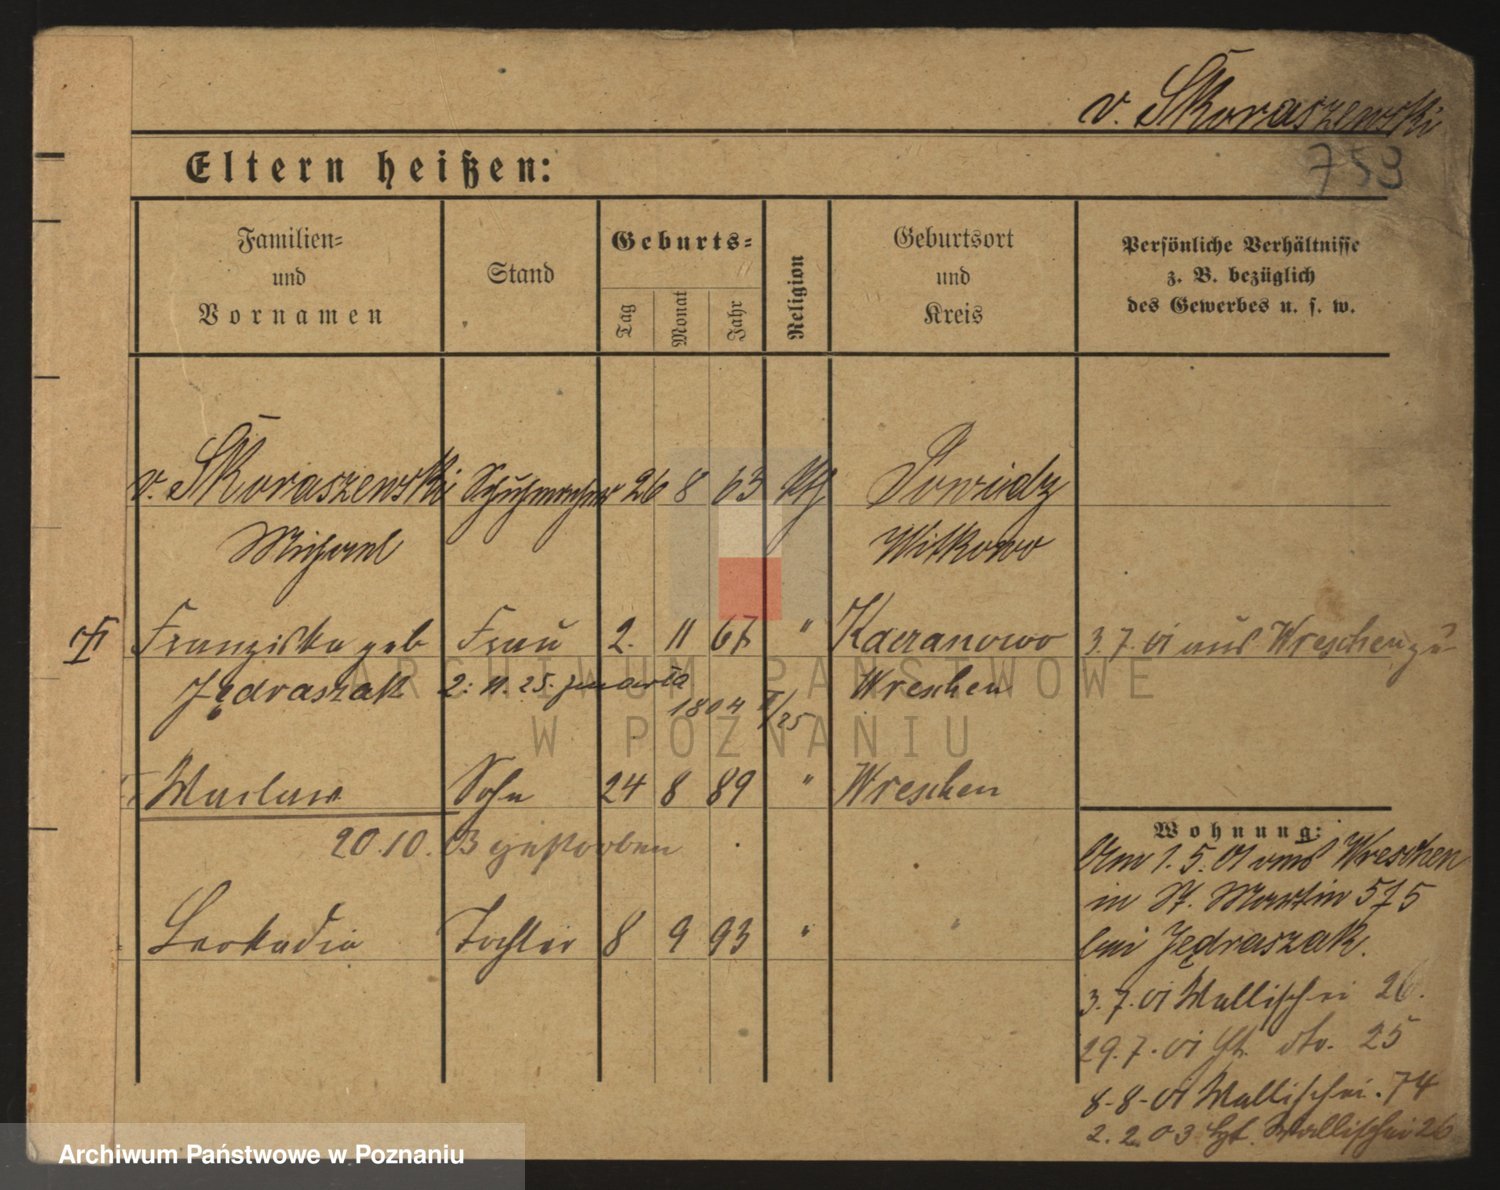 v. Skoraszewski
753
Eltern heißen:
Familien- und Vornamen
Stand
Geburts-
Tag
Monat
Jahr
Religion
Geburtsort und Kreis
Persönliche Verhältnisse
z. B. bezüglich
des Gewerbes u. s. w.
v. Skoraszewski Schuhmacher 26 8 63 kth Powidz
Michael Witkowo
Franziska geb Frau 2. 11 67 " Kaczanowo 3.7.01 aus Wreschen zu
Jędraszak 2. 11. 25. Wreschen
1804
Waclaw Sohn 24 8 89 " Wreschen
20.10.03 gestorben
Leokadia Tochter 8 9 93 " "
Wohnung:
Am 1.5.01 aus Wreschen
in St. Martin 575
bei Jędraszak.
3.7.01 Wallischei 26.
29.7.01 ht. dto. 25
8-8-01 Wallischei. 74
2.2.03 ht. Wallischei 26
ARCHIWUM PAŃSTWOWE
W POZNANIU
Archiwum Państwowe w Poznaniu